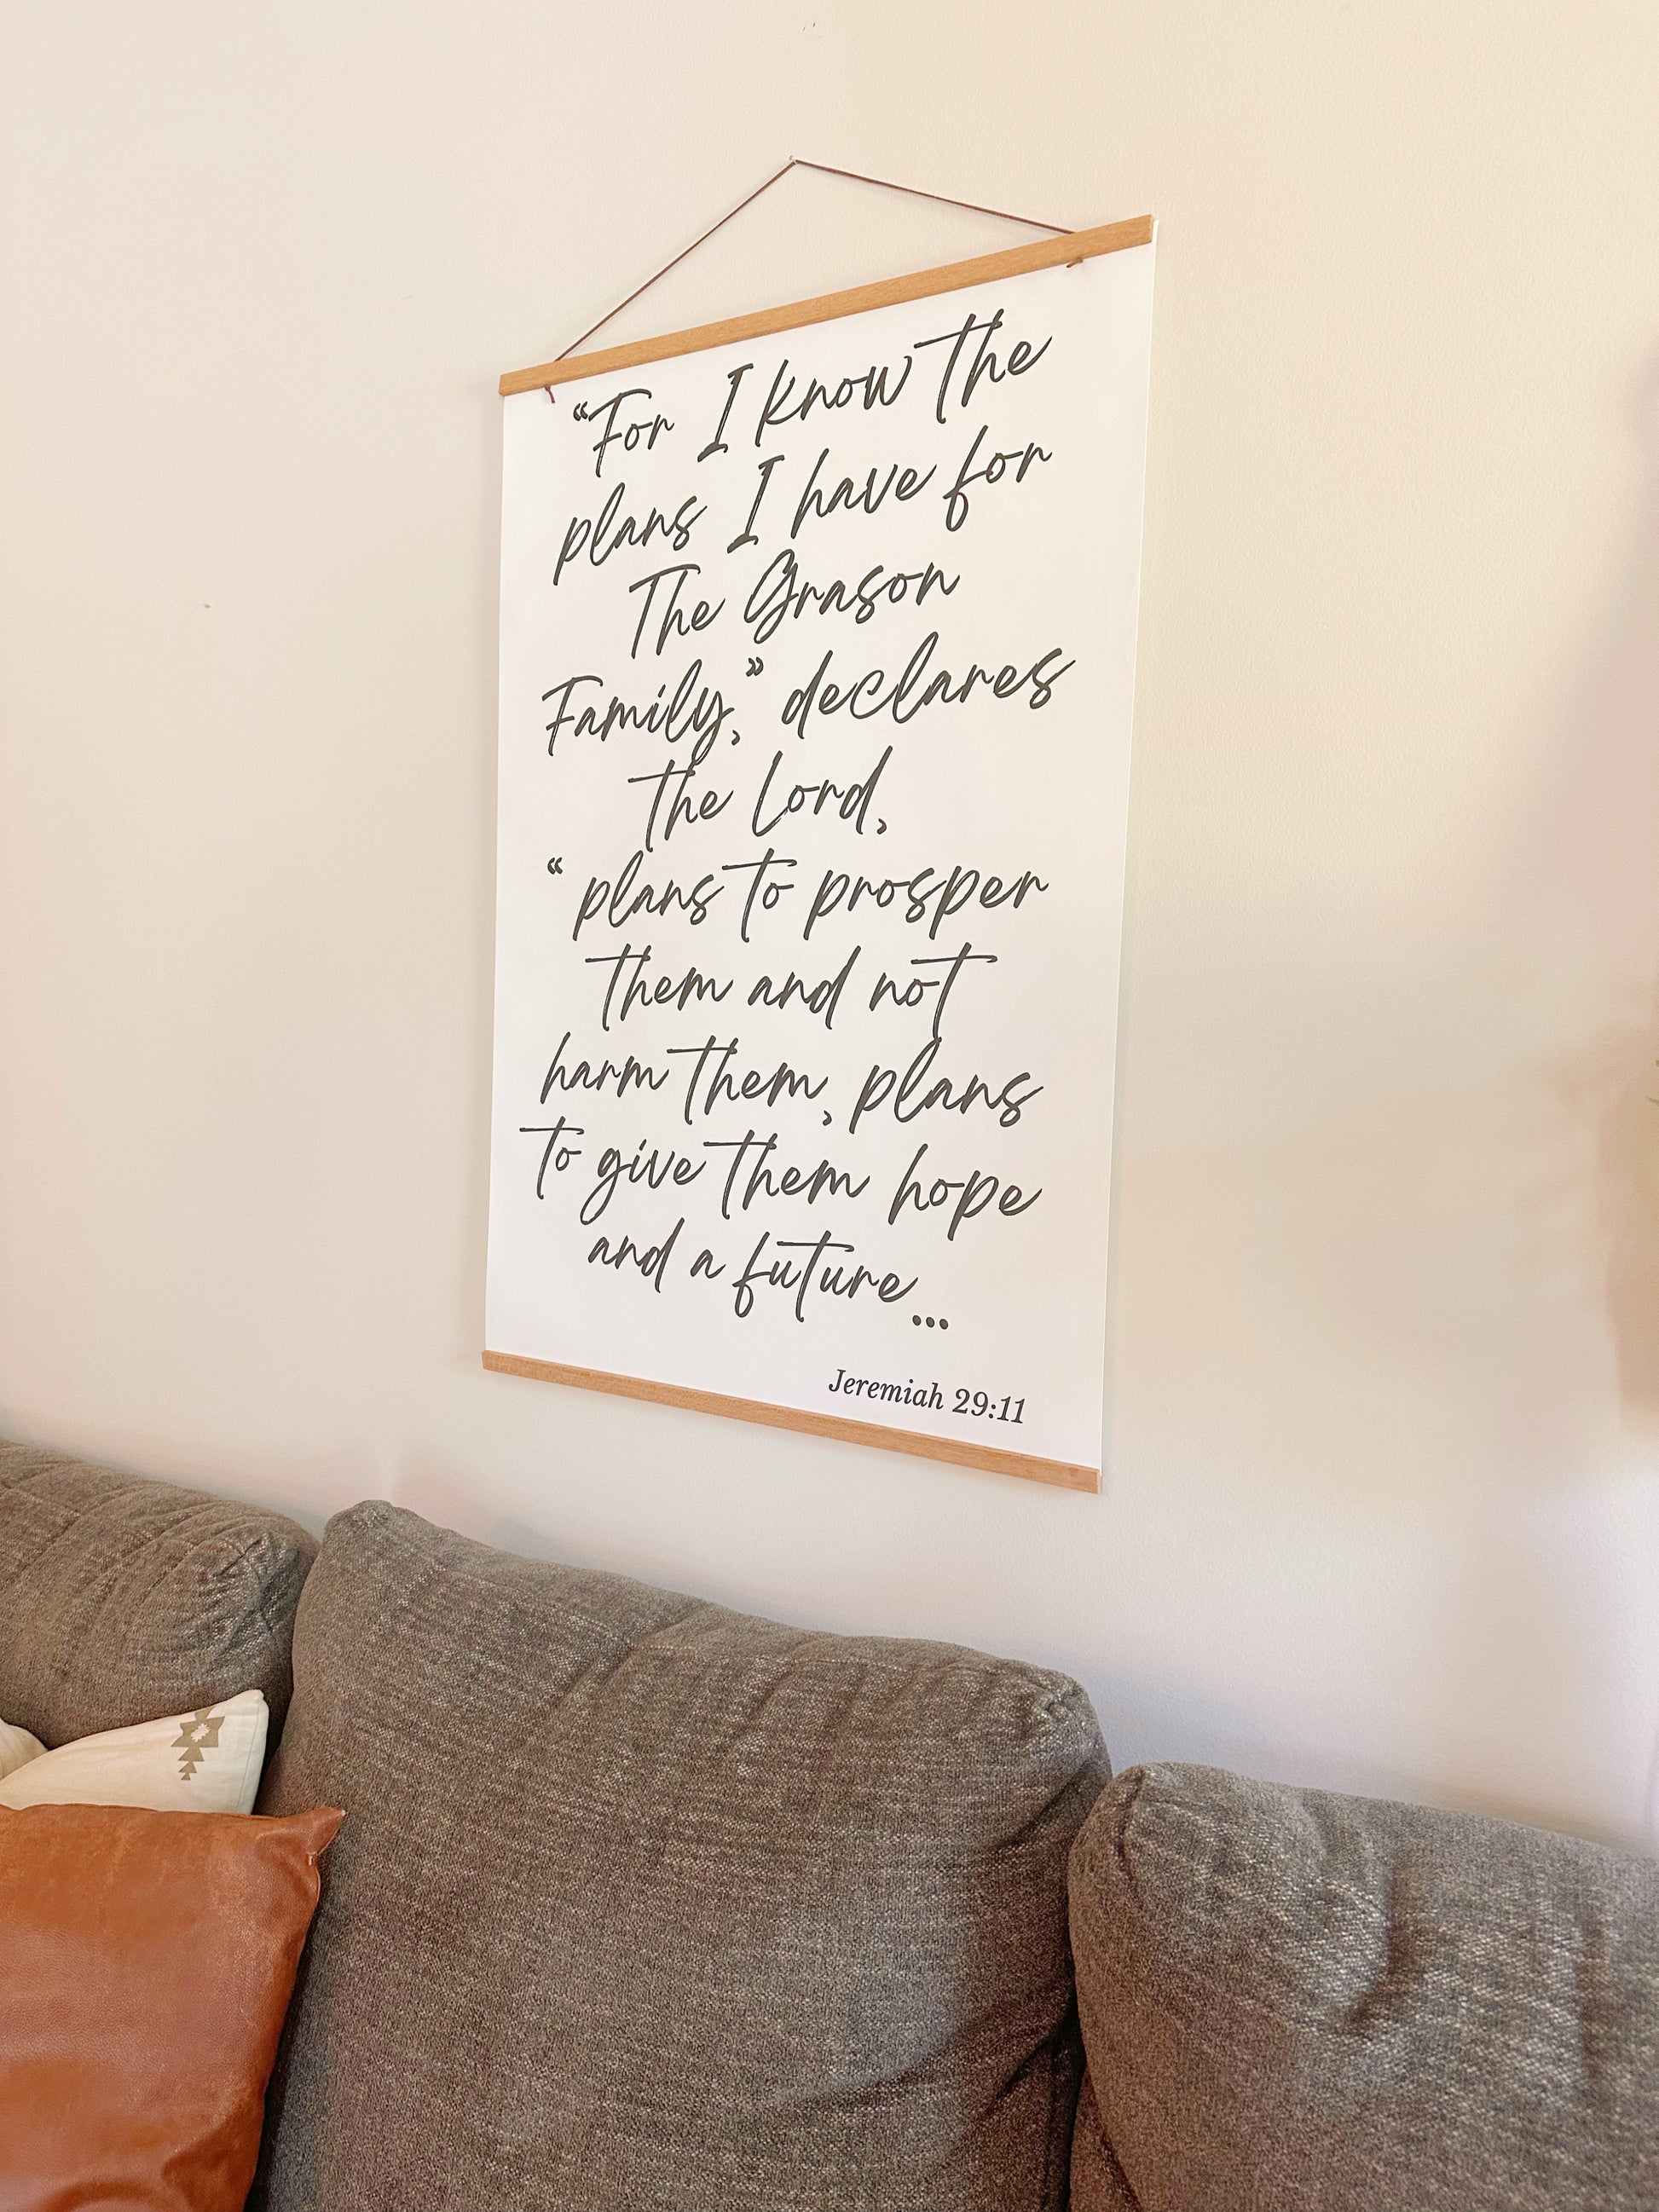 “For I know the
plans I have for
The Grason
Family,” declares
the Lord,
“ plans to prosper
them and not
harm them, plans
to give them hope
and a future...
Jeremiah 29:11